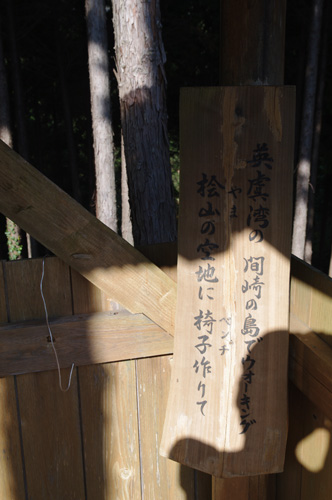 英虞湾の間崎の島でウォーキング
桧山の空地に椅子作りて
やま
ベンチ